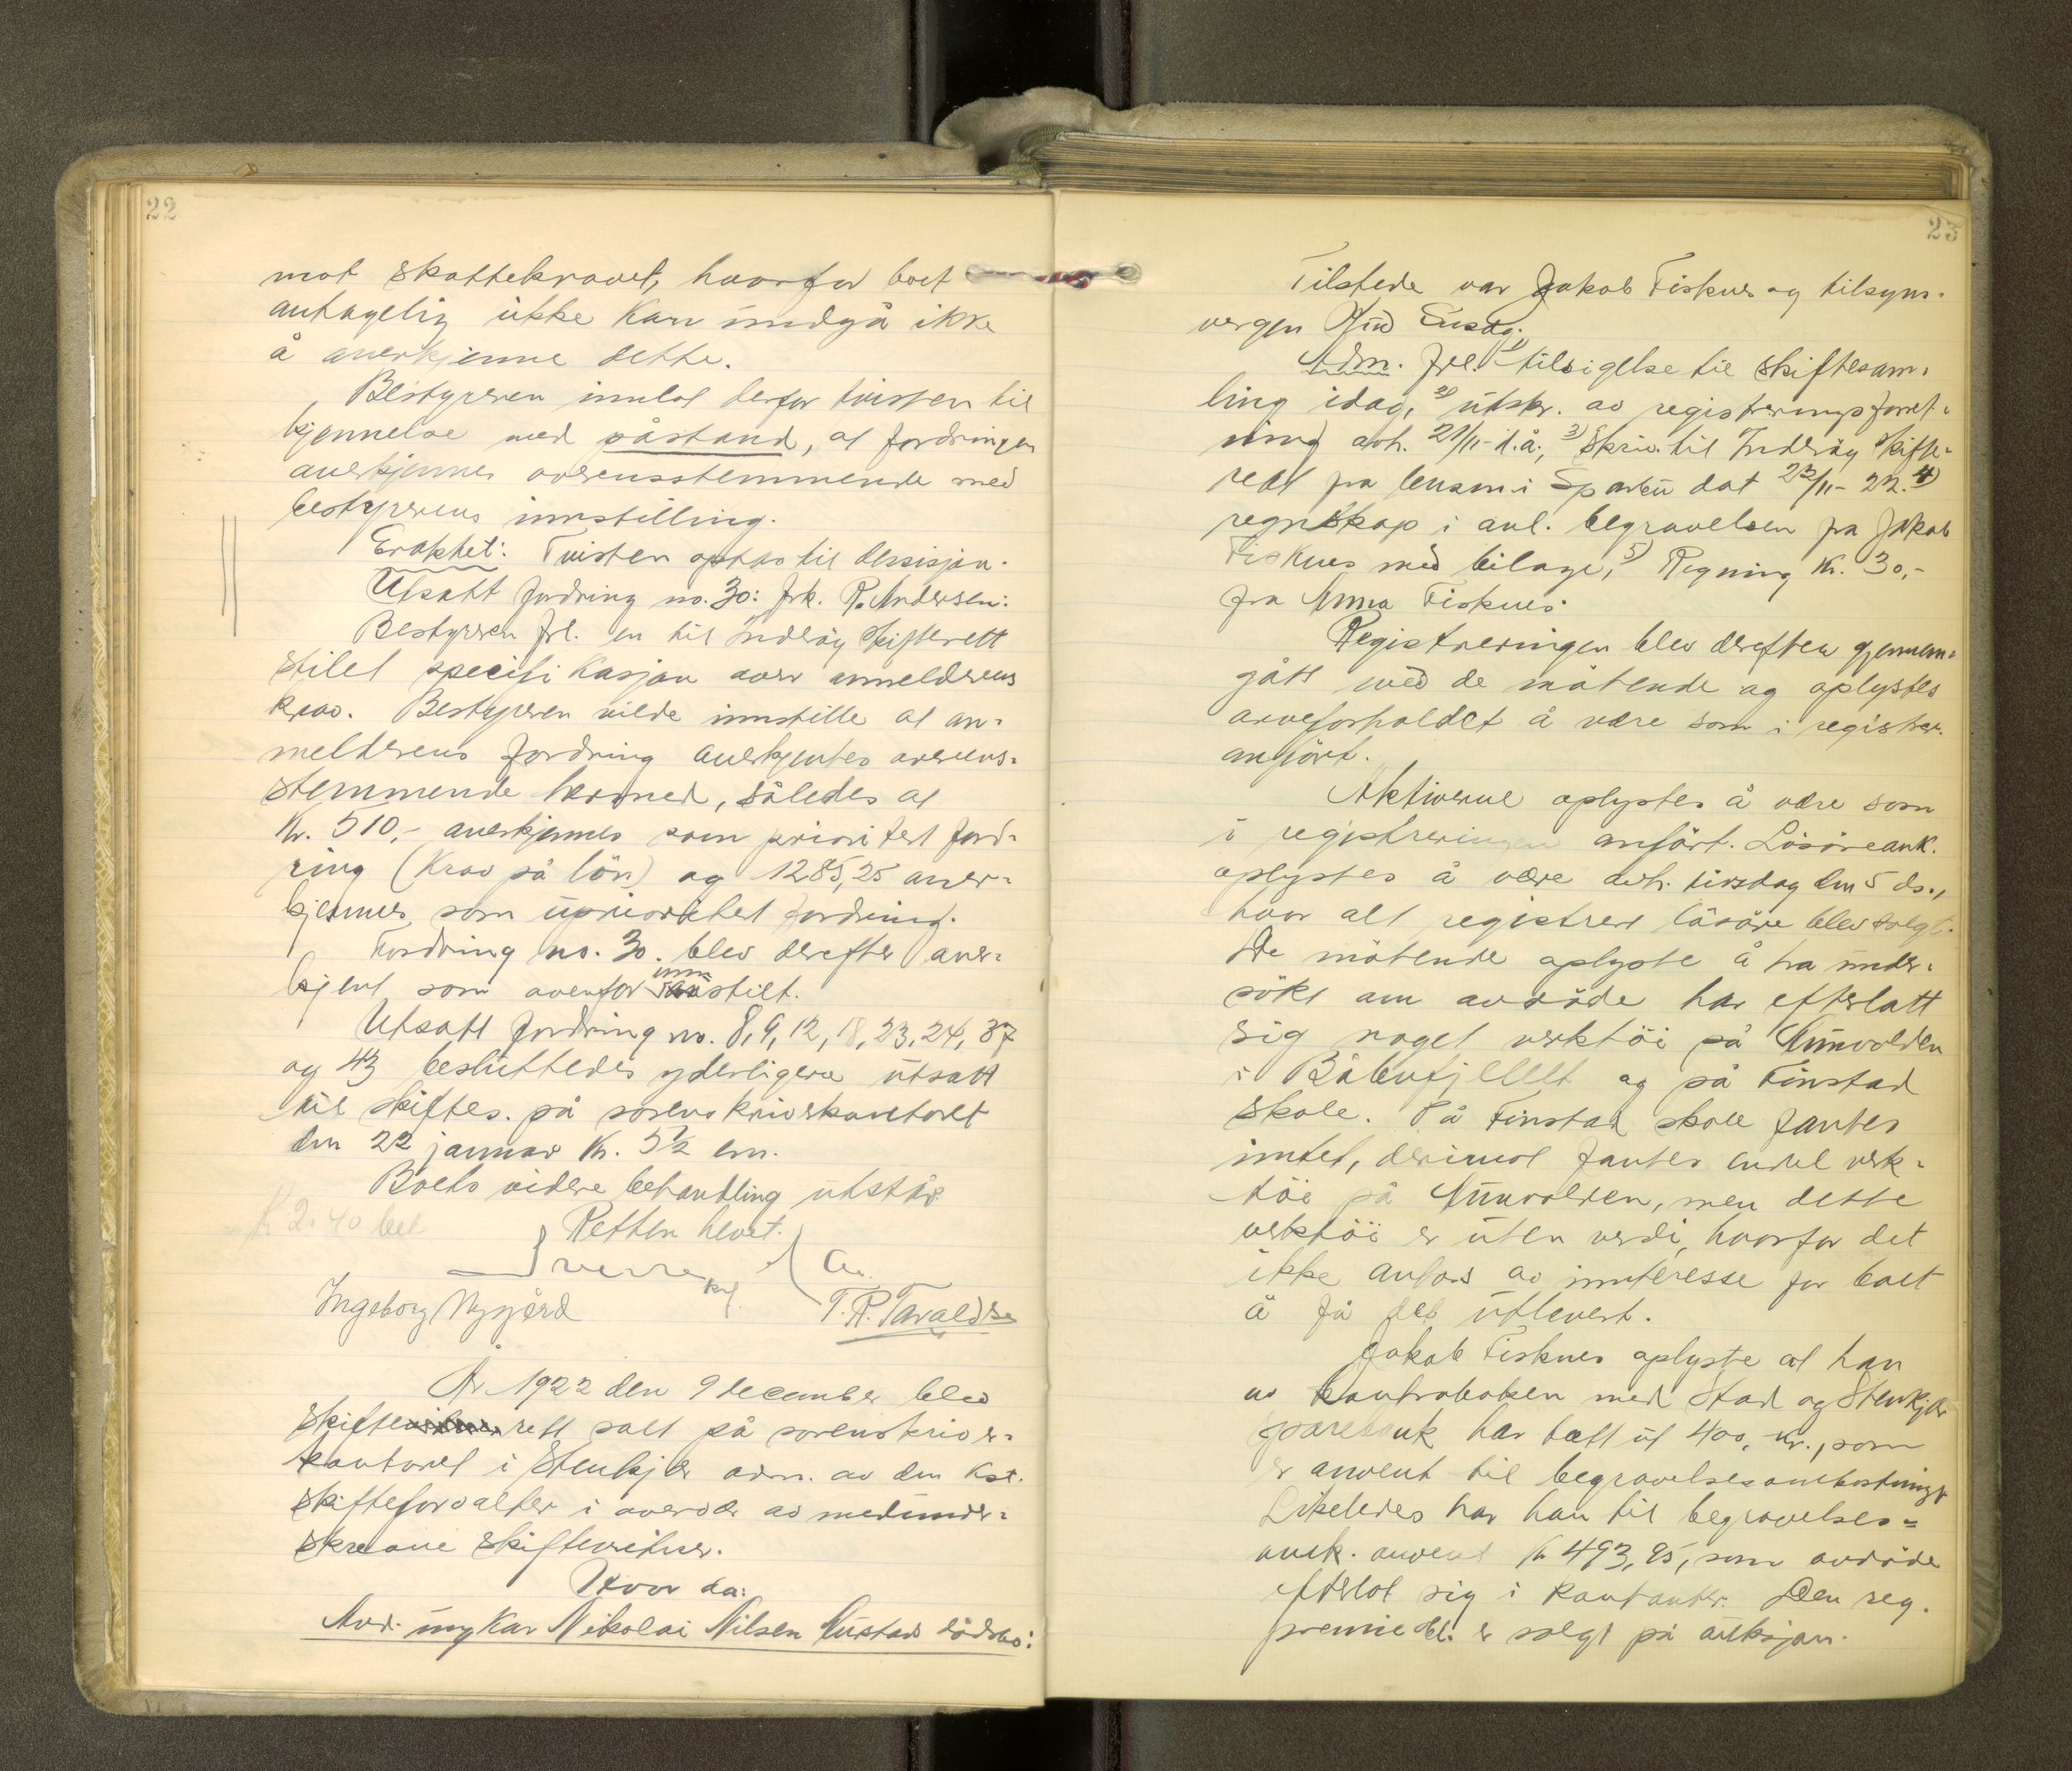 22
mot skattekravet, hvorfor boet
antagelig ikke kan undgå ikke
å anerkjenne dette.
Bestyreren innlot derfor tvisten til
kjennelse med påstand, at fordringen
anerkjennes overensstemmende med
bestyrerens innstilling.
Eraktet: Tvisten optas til dessisjon.
Utsatt fordring no. 30: frk. R. Andersen:
Bestyreren frl. en til Inderöy skifterett
stilet specifikasjon over anmelderens
krav. Bestyreren vilde innstille at an-
melderens fordring anerkjentes overens-
stemmende hermed, således at
Kr. 510,- anerkjennes som prioritert ford-
ring (krav på lön) og 1285,25 aner-
kjennes som uprioritet fordring.
Fordring no. 30. blev derefter aner-
kjent som ovenfor innstilt.
Utsatt fordring no. 8, 9, 12, 18, 23, 24, 37
og 43 besluttedes yderligere utsatt
til skiftes. på sorenskriverkontoret
den 22 januar Kl. 5½ em.
Boets videre behandling utstår.
K 2.40 bet
Retten hevet.
Ingeborg Nygård
T. R. Tavaldsen
År 1922 den 9 december blev
skifterett satt på sorenskriver-
kontoret i Stenkjer adm. av den kst.
skifteforvalter i overvær av medunder-
skrevne skiftevitner.
Hvor da:
Avd. ungkar Nikolai Nilsen Gustads dödsbo:
23
Tilstede var Jakob Fisknes og tilsyns-
vergen
Adm. frl. 1) tilsigelse til skiftesam-
ling idag, 2) utskr. av registreringsforret-
ning avh. 21/11 d.å., 3) Skriv. til Inderöy skifte-
rett fra lensm. i Sparbu dat 23/11-22. 4)
regnskap i anl. begravelsen fra Jakob
Fisknes med bilage, 5) Regning Kr. 30,-
fra Anna Fisknes.
Registreringen blev derefter gjennem-
gått med de mötende og oplystes
arveforholdet å være som i registrer.
anfört.
Aktiverne oplystes å være som
i registreringen anfört. Lösöreauk.
oplystes å være avh. tirsdag den 5 ds.,
hvor alt registrert lösöre blev solgt.
De mötende oplyste å ha under-
sökt om avdöde har efterlatt
sig noget verktöi på
i og på Finstad
skole. På Finstad skole fantes
intet, derimot fantes endel verk-
töi på men dette
verktöi er uten verdi, hvorfor det
ikke antas av innteresse for boet
å få det utlevert.
Jakob Fisknes oplyste at han
av kontraboken med Stod og Stenkjær
sparebank har tatt ut 400, kr., som
er anvent til begravelsesomkostninger
Likeledes har han til begravelses-
omk. anvent Kr 493,95, som avdöde
efterlot sig i kontanter. Den reg.
premieobl. er solgt på auksjon.